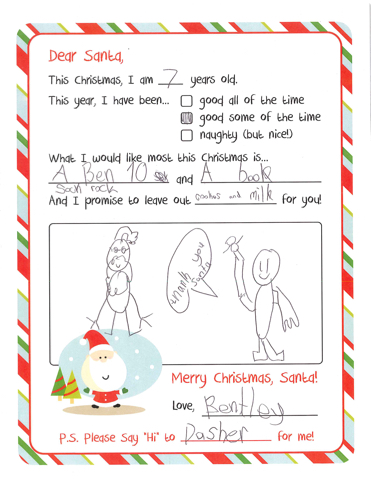 Dear Santa,
This Christmas, I am 7 years old.
This year, I have been... good all of the time
good some of the time
naughty (but nice!)
What I would like most this Christmas is...
A Ben 10 and A book
rock
And I promise to leave out cookies and milk for you!
thank you santa
Merry Christmas, Santa!
Love, Bentley
P.S. Please Say "Hi" to Dasher for me!